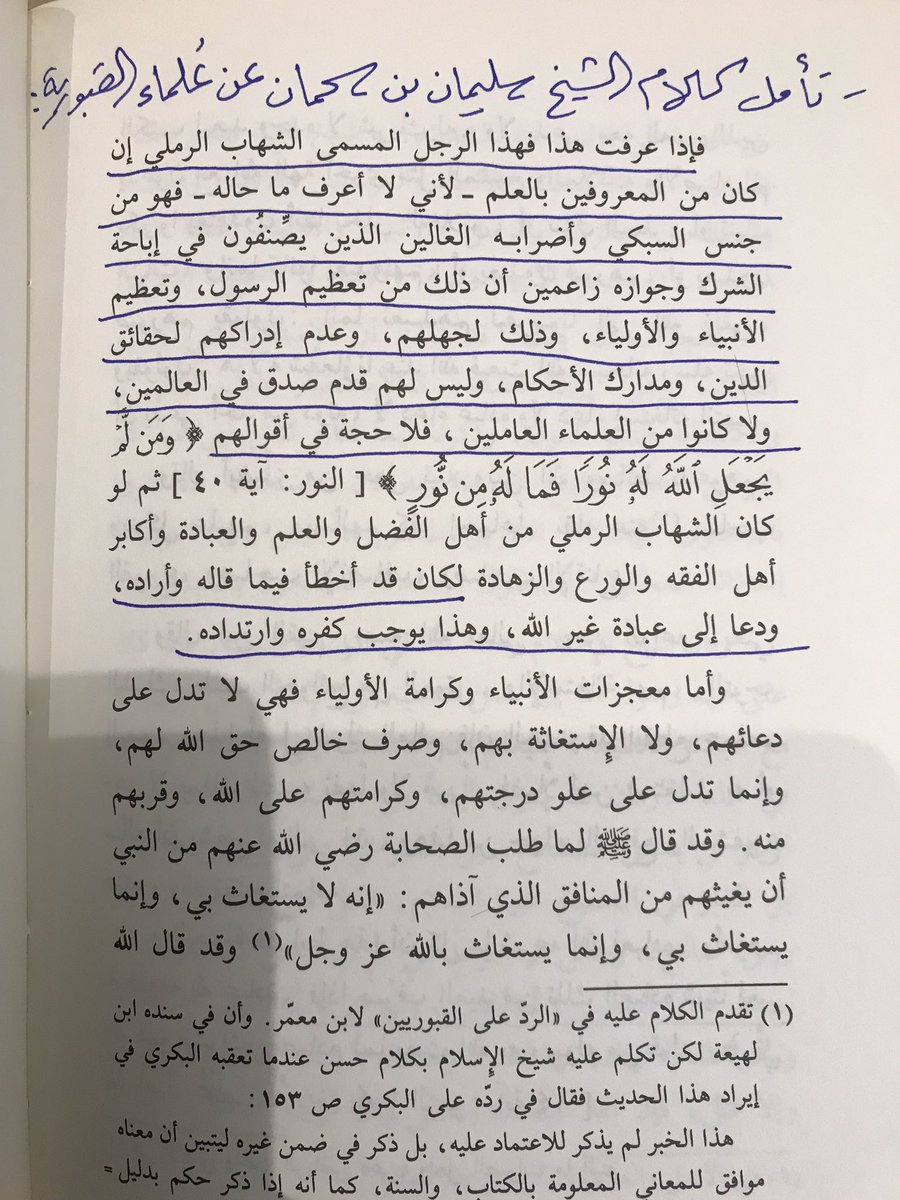 - تأمل كلام الشيخ سليمان بن سحمان عن عُلماء القبورية:
فإذا عرفت هذا فهذا الرجل المسمى الشهاب الرملي إن
كان من المعروفين بالعلم ـ لأني لا أعرف ما حاله ـ فهو من
جنس السبكي وأضرابه الغالين الذين يصنِّفُون في إباحة
الشرك وجوازه زاعمين أن ذلك من تعظيم الرسول، وتعظيم
الأنبياء والأولياء، وذلك لجهلهم، وعدم إدراكهم لحقائق
الدين، ومدارك الأحكام، وليس لهم قدم صدق في العالمين،
ولا كانوا من العلماء العاملين، فلا حجة في أقوالهم ﴿ وَمَن لَّمْ
يَجْعَلِ ٱللَّهُ لَهُۥ نُورًا فَمَا لَهُۥ مِن نُّورٍ ﴾ [ النور: آية ٤٠ ] ثم لو
كان الشهاب الرملي من أهل الفضل والعلم والعبادة وأكابر
أهل الفقه والورع والزهادة لكان قد أخطأ فيما قاله وأراده،
ودعا إلى عبادة غير الله، وهذا يوجب كفره وارتداده.
وأما معجزات الأنبياء وكرامة الأولياء فهي لا تدل على
دعائهم، ولا الإِستغاثة بهم، وصرف خالص حق الله لهم،
وإنما تدل على علو درجتهم، وكرامتهم على الله، وقربهم
منه. وقد قال ﷺ لما طلب الصحابة رضي الله عنهم من النبي
أن يغيثهم من المنافق الذي آذاهم: «إنه لا يستغاث بي، وإنما
يستغاث بي، وإنما يستغاث بالله عز وجل»(١) وقد قال الله
(١) تقدم الكلام عليه في «الردّ على القبوريين» لابن معمّر. وأن في سنده ابن
لهيعة لكن تكلم عليه شيخ الإِسلام بكلام حسن عندما تعقبه البكري في
إيراد هذا الحديث فقال في ردّه على البكري ص ١٥٣:
هذا الخبر لم يذكر للاعتماد عليه، بل ذكر في ضمن غيره ليتبين أن معناه
موافق للمعاني المعلومة بالكتاب، والسنة، كما أنه إذا ذكر حكم بدليل =